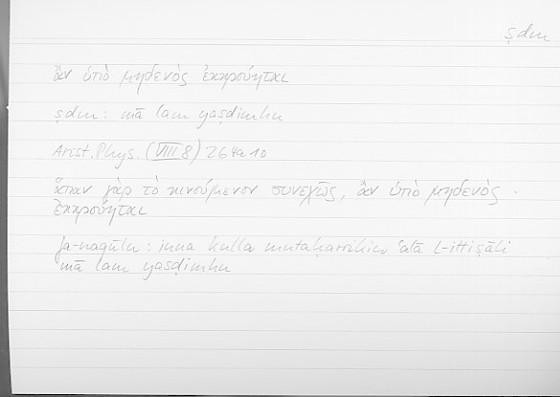 ṣdm
ἂν ὑπὸ μηδενὸς ἐκκρούηται
ṣdm: mā lam yaṣdimhu
Arist. Phys. (VIII 8) 264a10
ἅπαν γὰρ τὸ κινούμενον συνεχῶς, ἂν ὑπὸ μηδενὸς
ἐκκρούηται
fa-naqūlu: inna kulla mutaḥarrikin ʿalā l-ittiṣāli
mā lam yaṣdimhu